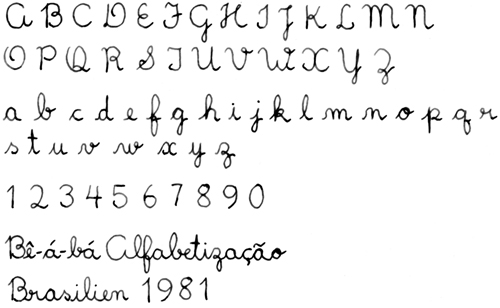 A B C D E F G H I J K L M N
O P Q R S T U V W X Y Z
a b c d e f g h i j k l m n o p q r
s t u v w x y z
1 2 3 4 5 6 7 8 9 0
Bê-á-bá Alfabetização
Brasilien 1981